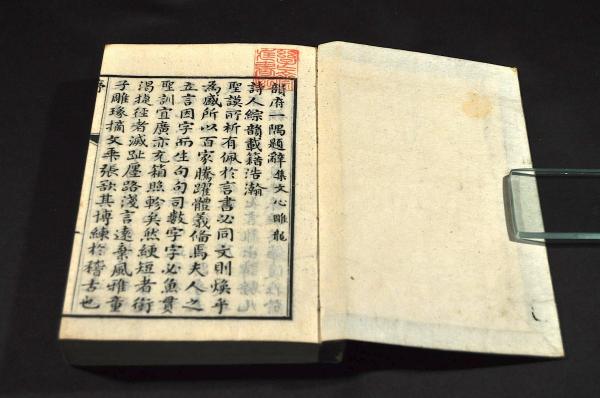 韻府一隅題辭 集文心雕龍
詩人綜韻載籍浩瀚
聖謨所析有佩於言書必同文則煥乎
為盛所以百家騰躍體義備焉夫人之
立言因字而生句句司數字字必魚貫
聖訓宜廣亦充箱照軫矣然綆短者銜
渴捷徑者滅趾路淺言遠棄風雅童
子雕琢摘文乖張其博練於稽古也
序